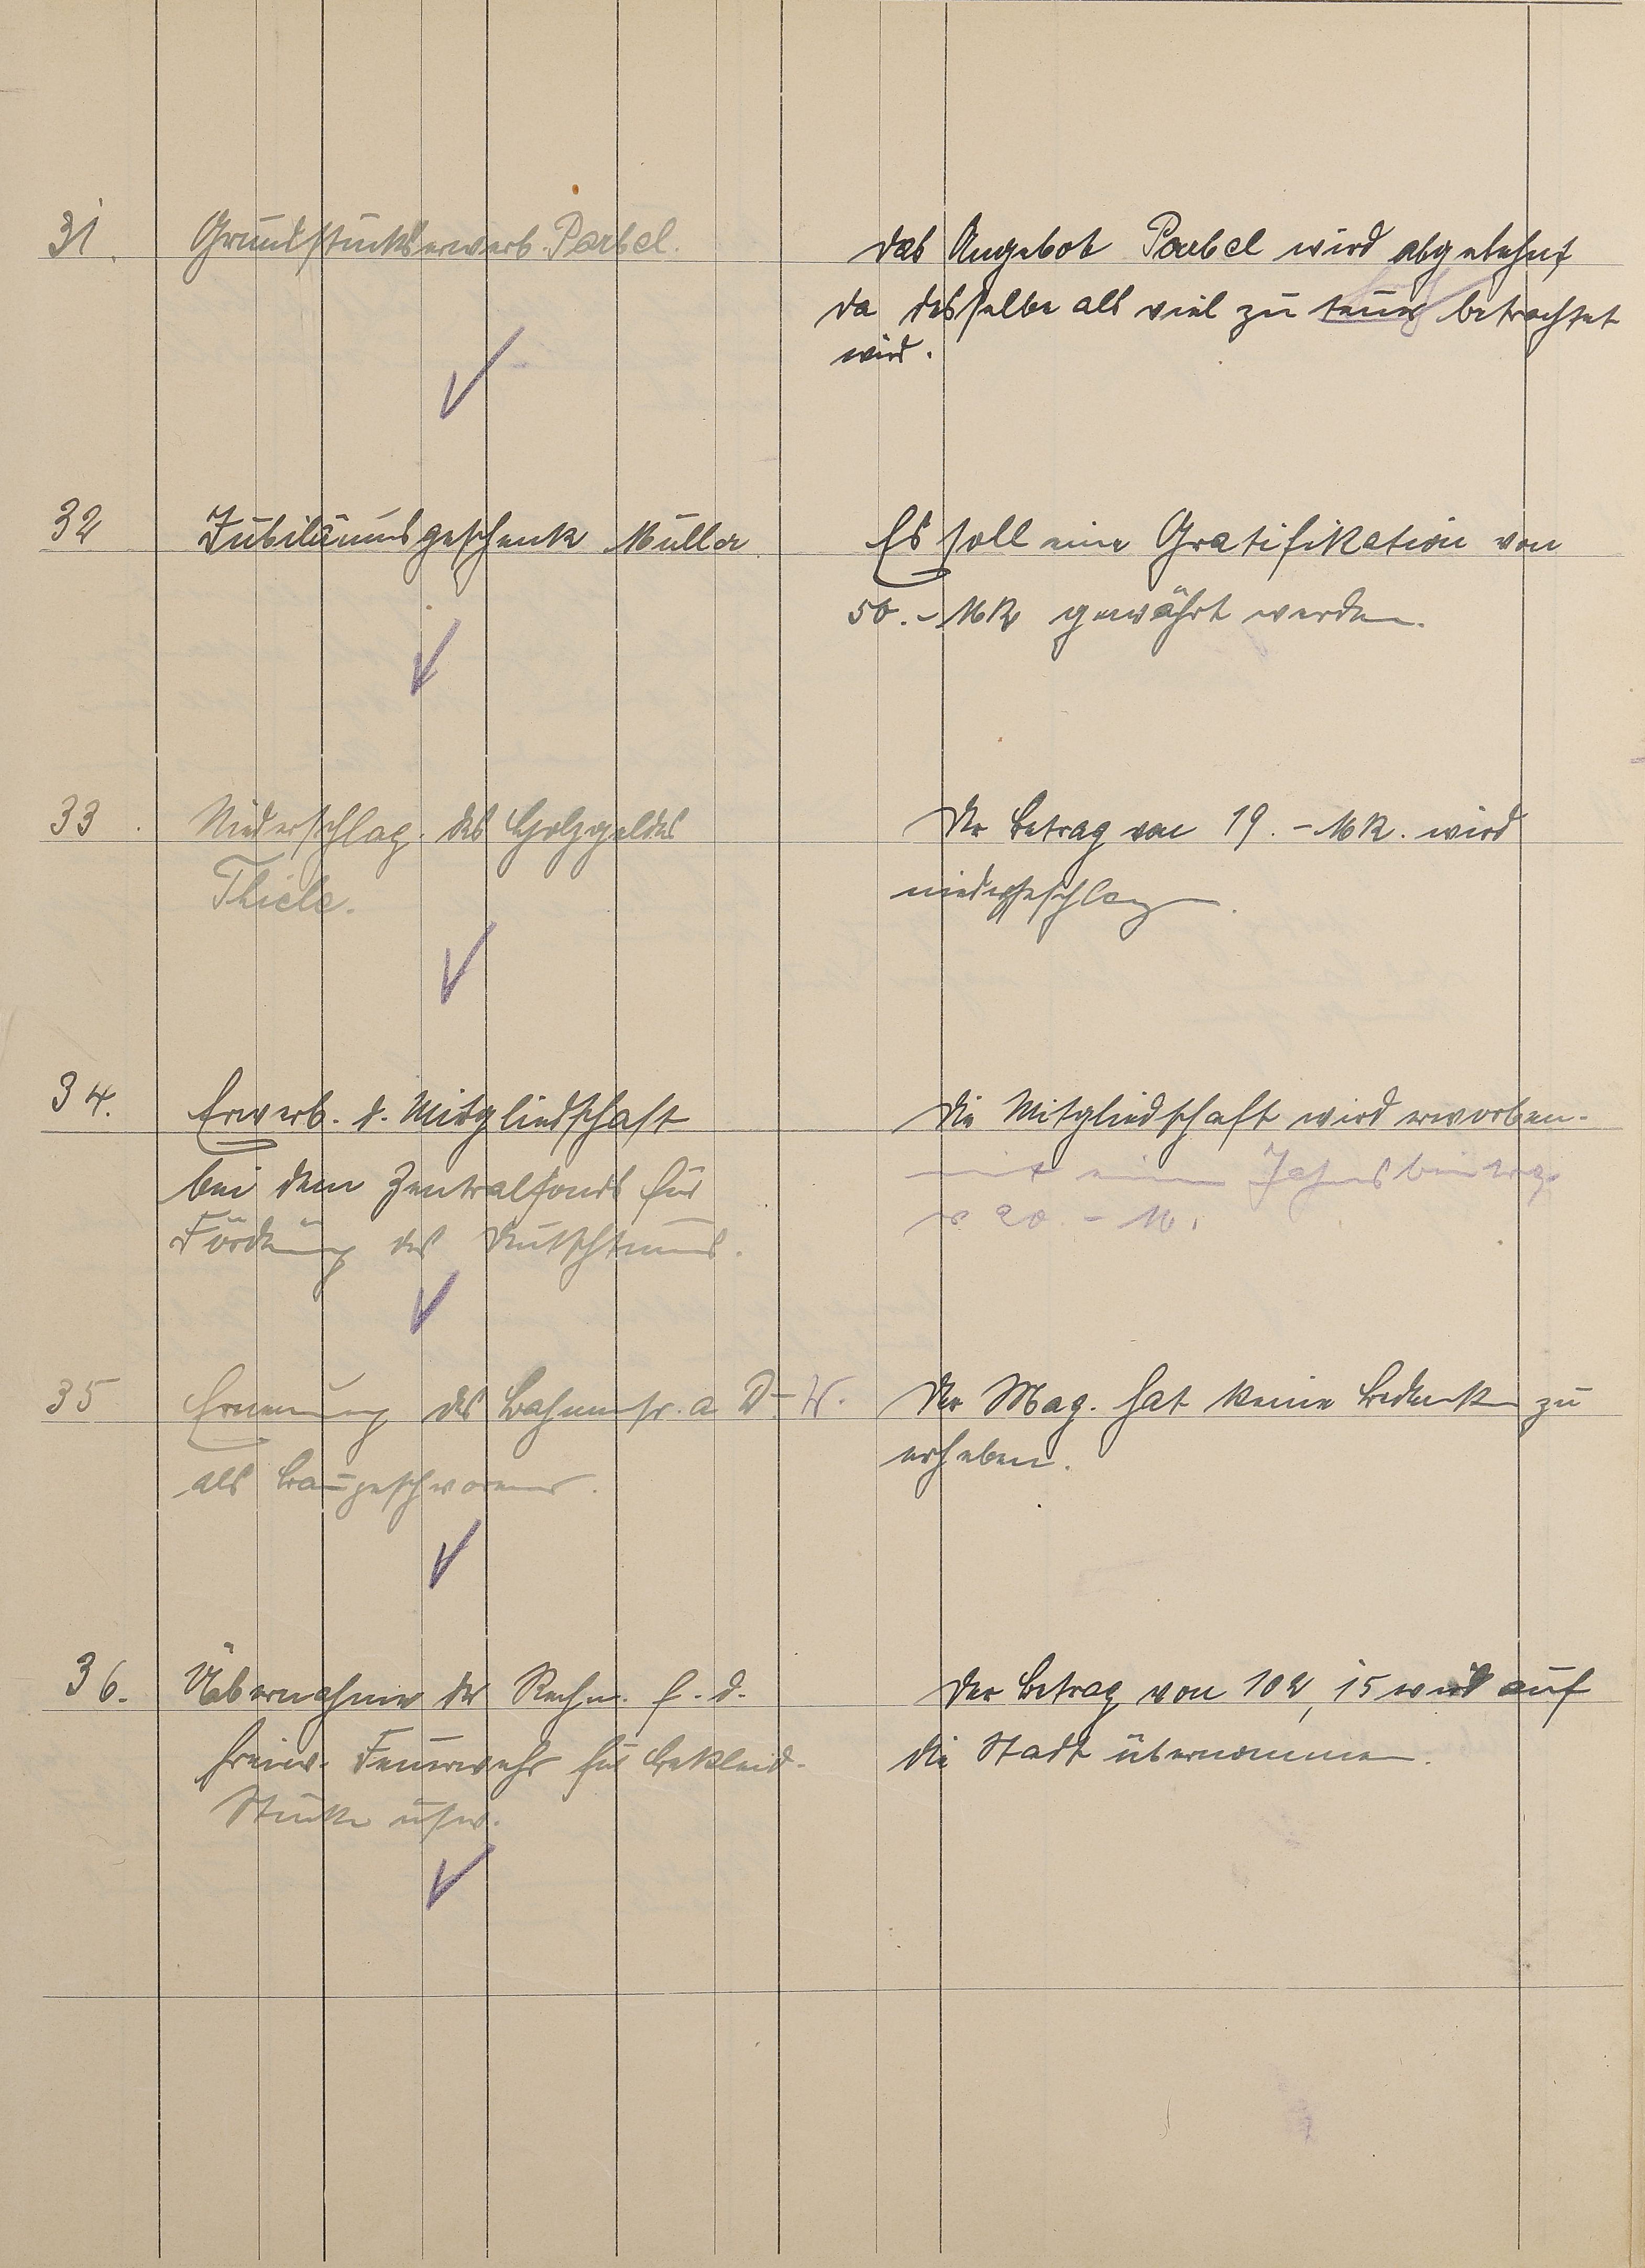 31. Grundstückserwerb Parbel.
das Angebot Parbel wird abgelehnt
da dasselbe als viel zu teuer betrachtet
wird.
32 Jubiläumsgeschenk Müller
Es soll eine Gratifikation von
50.- Mk gewährt werden.
33. Niederschlag. des Holzgeldes
Thiele.
Der Betrag von 19.- Mk. wird
niedergeschlagen.
34. Erwerb. d. Mitgliedschaft
bei dem Zentralfonds für
Förderung des Deutschtums.
Die Mitgliedschaft wird erworben.
mit einem Jahresbeitrag
v 20.- M.
35 Ernennung des Bahnmstr. a D. W.
als Baugeschworener.
Der Mag. hat keine Bedenken zu
erheben.
36. Übernahme der Rechn. f. d.
freiw. Feuerwehr für Bekleid.
Stücke usw.
Der Betrag von 102,15 wird auf
die Stadt übernommen.